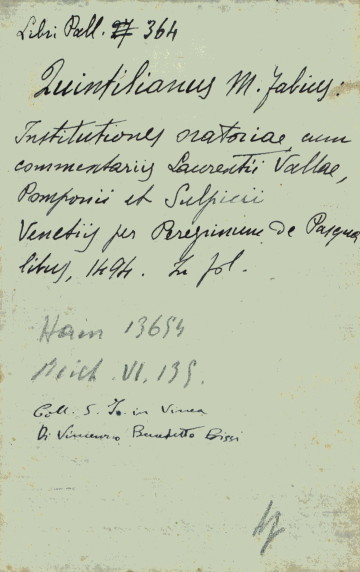 Libri Pall. 364
Quintilianus M. Fabius:
Institutiones oratoriae cum
commentariis Laurentii Vallae,
Pomponii et Sulpicii
Venetiis per Peregrinum de Pasqua
libus, 1494. In fol.
Hain 13654
Reich. VI, 139.
Coll. S. Jo. in Vinea
Di Vincenzo Benedetto Bissi